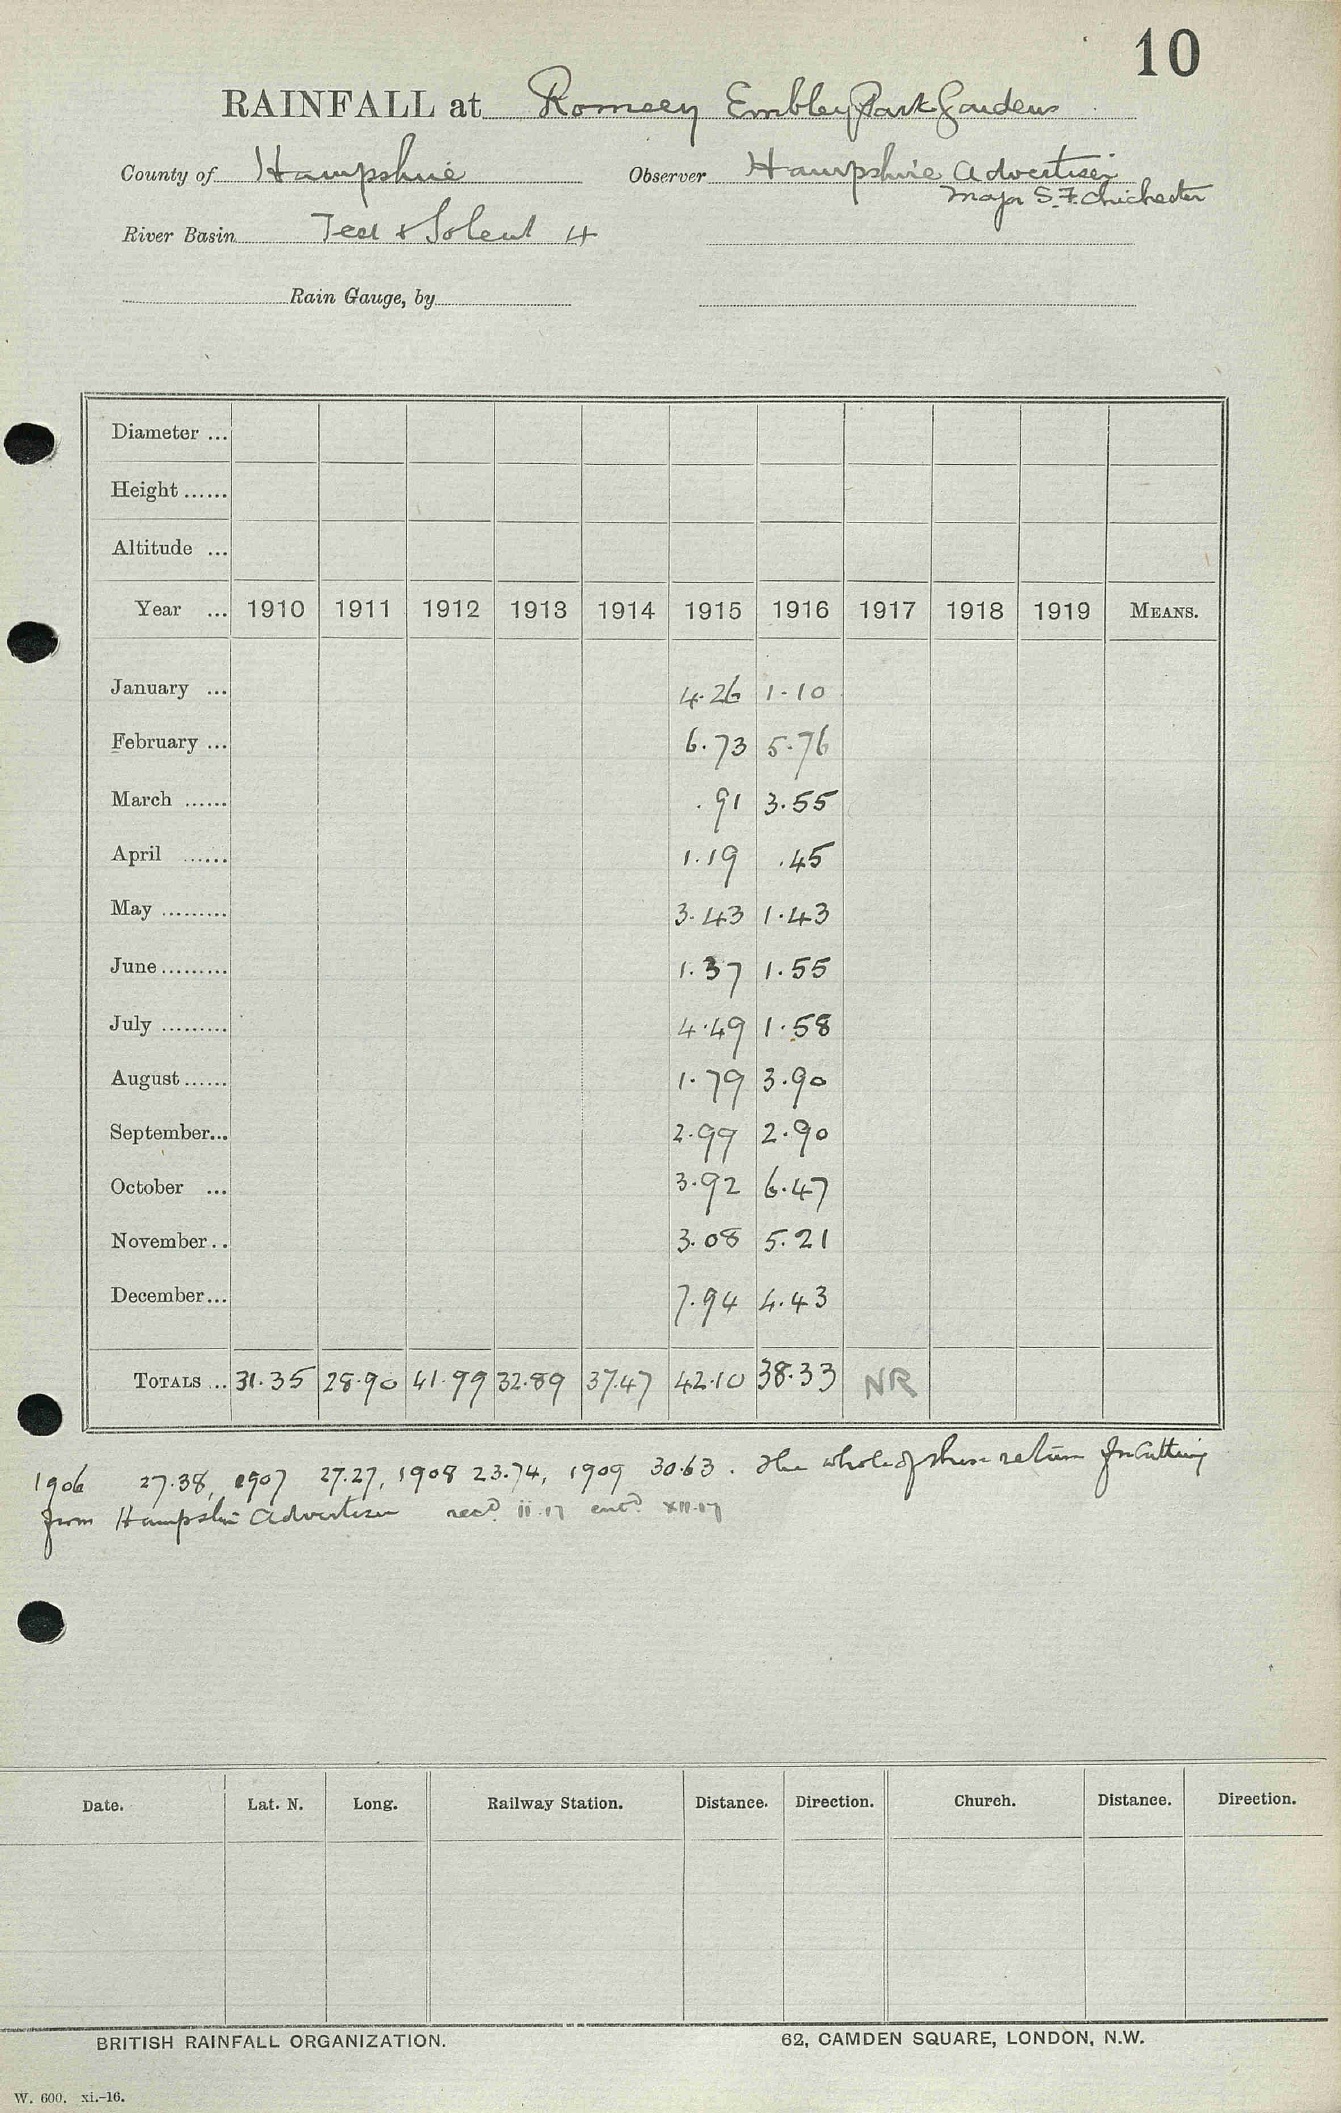 10
RAINFALL at Romsey Embley Park Gardens
County of Hampshire Observer Hampshire Advertiser
Major S. F. Chichester
River Basin Test & Solent 4
Rain Gauge, by
Diameter ...
Height ......
Altitude ...
Year ... 1910 1911 1912 1913 1914 1915 1916 1917 1918 1919 MEANS.
January ... 4.26 1.10
February ... 6.73 5.76
March ...... .91 3.55
April ...... 1.19 .45
May ......... 3.43 1.43
June ......... 1.37 1.55
July ......... 4.49 1.58
August ...... 1.79 3.90
September... 2.99 2.90
October ... 3.92 6.47
November .. 3.08 5.21
December... 7.94 4.43
TOTALS ... 31.35 28.90 41.99 32.89 37.47 42.10 38.33 NR
1906 27.38, 1907 27.27, 1908 23.74, 1909 30.63. The whole of these return fr Cutting
from Hampshire Advertiser recd ii.17 entd XII.17
Date. Lat. N. Long. Railway Station. Distance. Direction. Church. Distance. Direction.
BRITISH RAINFALL ORGANIZATION. 62, CAMDEN SQUARE, LONDON, N.W.
W. 600. xi.-16.